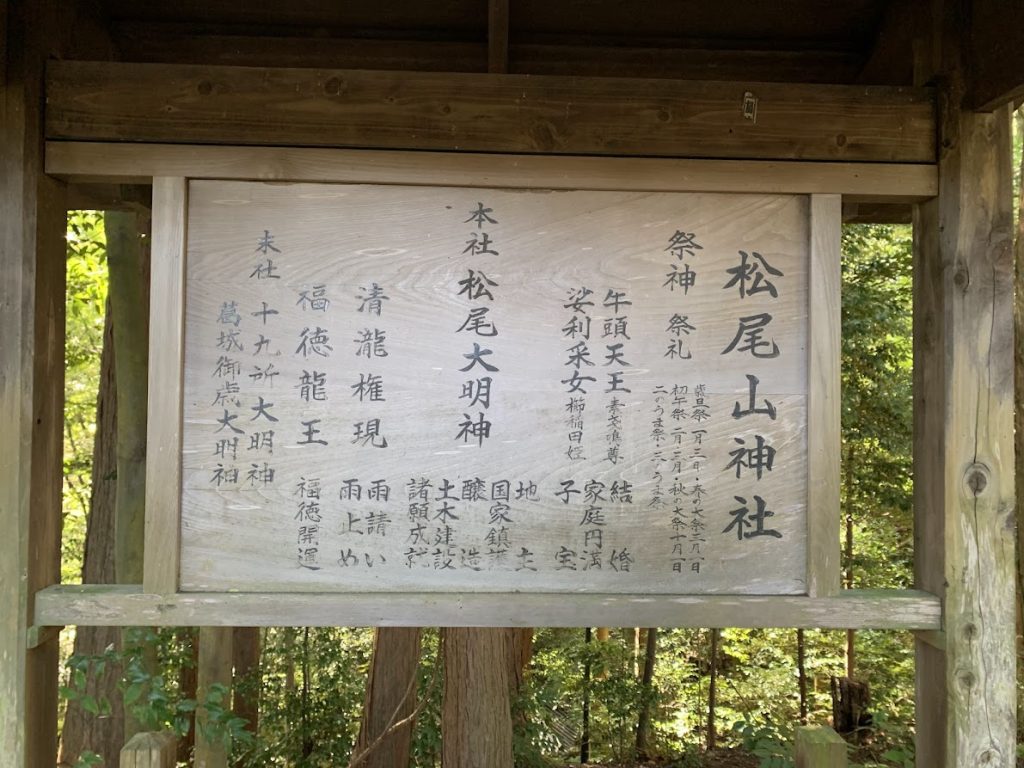 松尾山神社
祭神 祭礼
歳旦祭 一月三日・春の大祭三月一日
初午祭 二月・三月・秋の大祭十月一日
二のうま祭・三のうま祭
牛頭天王 素戔嗚尊 結婚
家庭円満
娑利采女 櫛稲田姫 子宝
本社 松尾大明神
地主
国家鎮護
醸造
土木建設
諸願成就
清瀧権現
雨請い
雨止め
福徳龍王 福徳開運
末社 十九所大明神
葛城御歳大明神